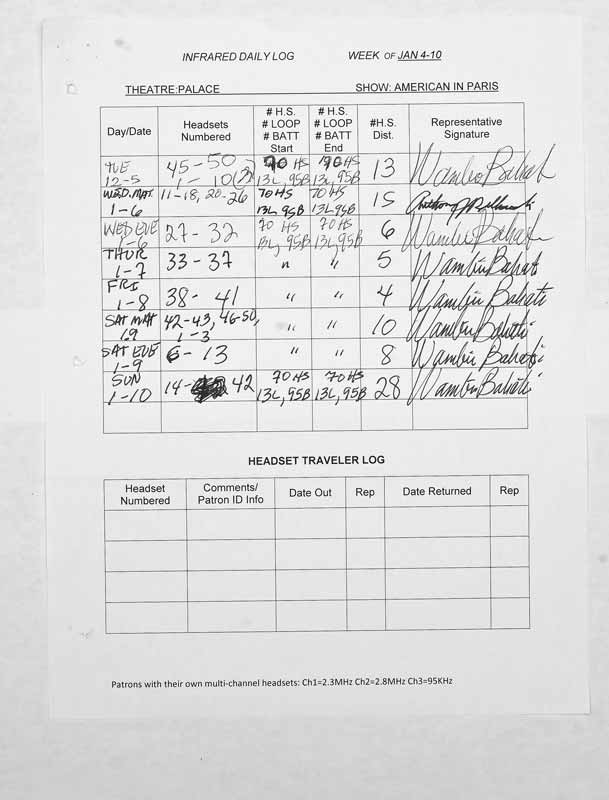 INFRARED DAILY LOG WEEK OF JAN 4-10
THEATRE:PALACE SHOW: AMERICAN IN PARIS
Day/Date Headsets Numbered # H.S. # LOOP # BATT Start # H.S. # LOOP # BATT End #H.S. Dist. Representative Signature
TUE 12-5 45-50 1-10 70 HS 13L, 95B 70 HS 13L, 95B 13 Wambui Bahati
WED. MAT. 1-6 11-18, 20-26 70 HS 13L 95B 70 HS 13L 95B 15
WED EVE 1-6 27-32 70 HS 13L, 95B 70 HS 13L, 95B 6 Wambui Bahati
THUR 1-7 33-37 " " 5 Wambui Bahati
FRI 1-8 38-41 " " 4 Wambui Bahati
SAT MAT 1-9 42-43, 46-50, 1-3 " " 10 Wambui Bahati
SAT EVE 1-9 6-13 " " 8 Wambui Bahati
SUN 1-10 14- 42 70 HS 13L, 95B 70 HS 13L, 95B 28 Wambui Bahati
HEADSET TRAVELER LOG
Headset Numbered Comments/ Patron ID Info Date Out Rep Date Returned Rep
Patrons with their own multi-channel headsets: Ch1=2.3MHz Ch2=2.8MHz Ch3=95KHz